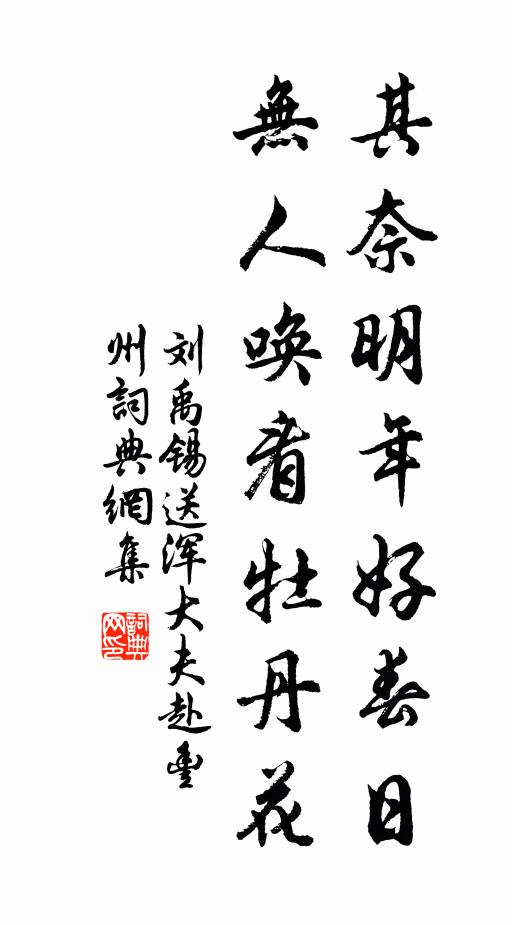 其奈明年好春日
無人喚看牡丹花
刘禹锡送浑大夫赴豐
州詞典網集
詞典
网印